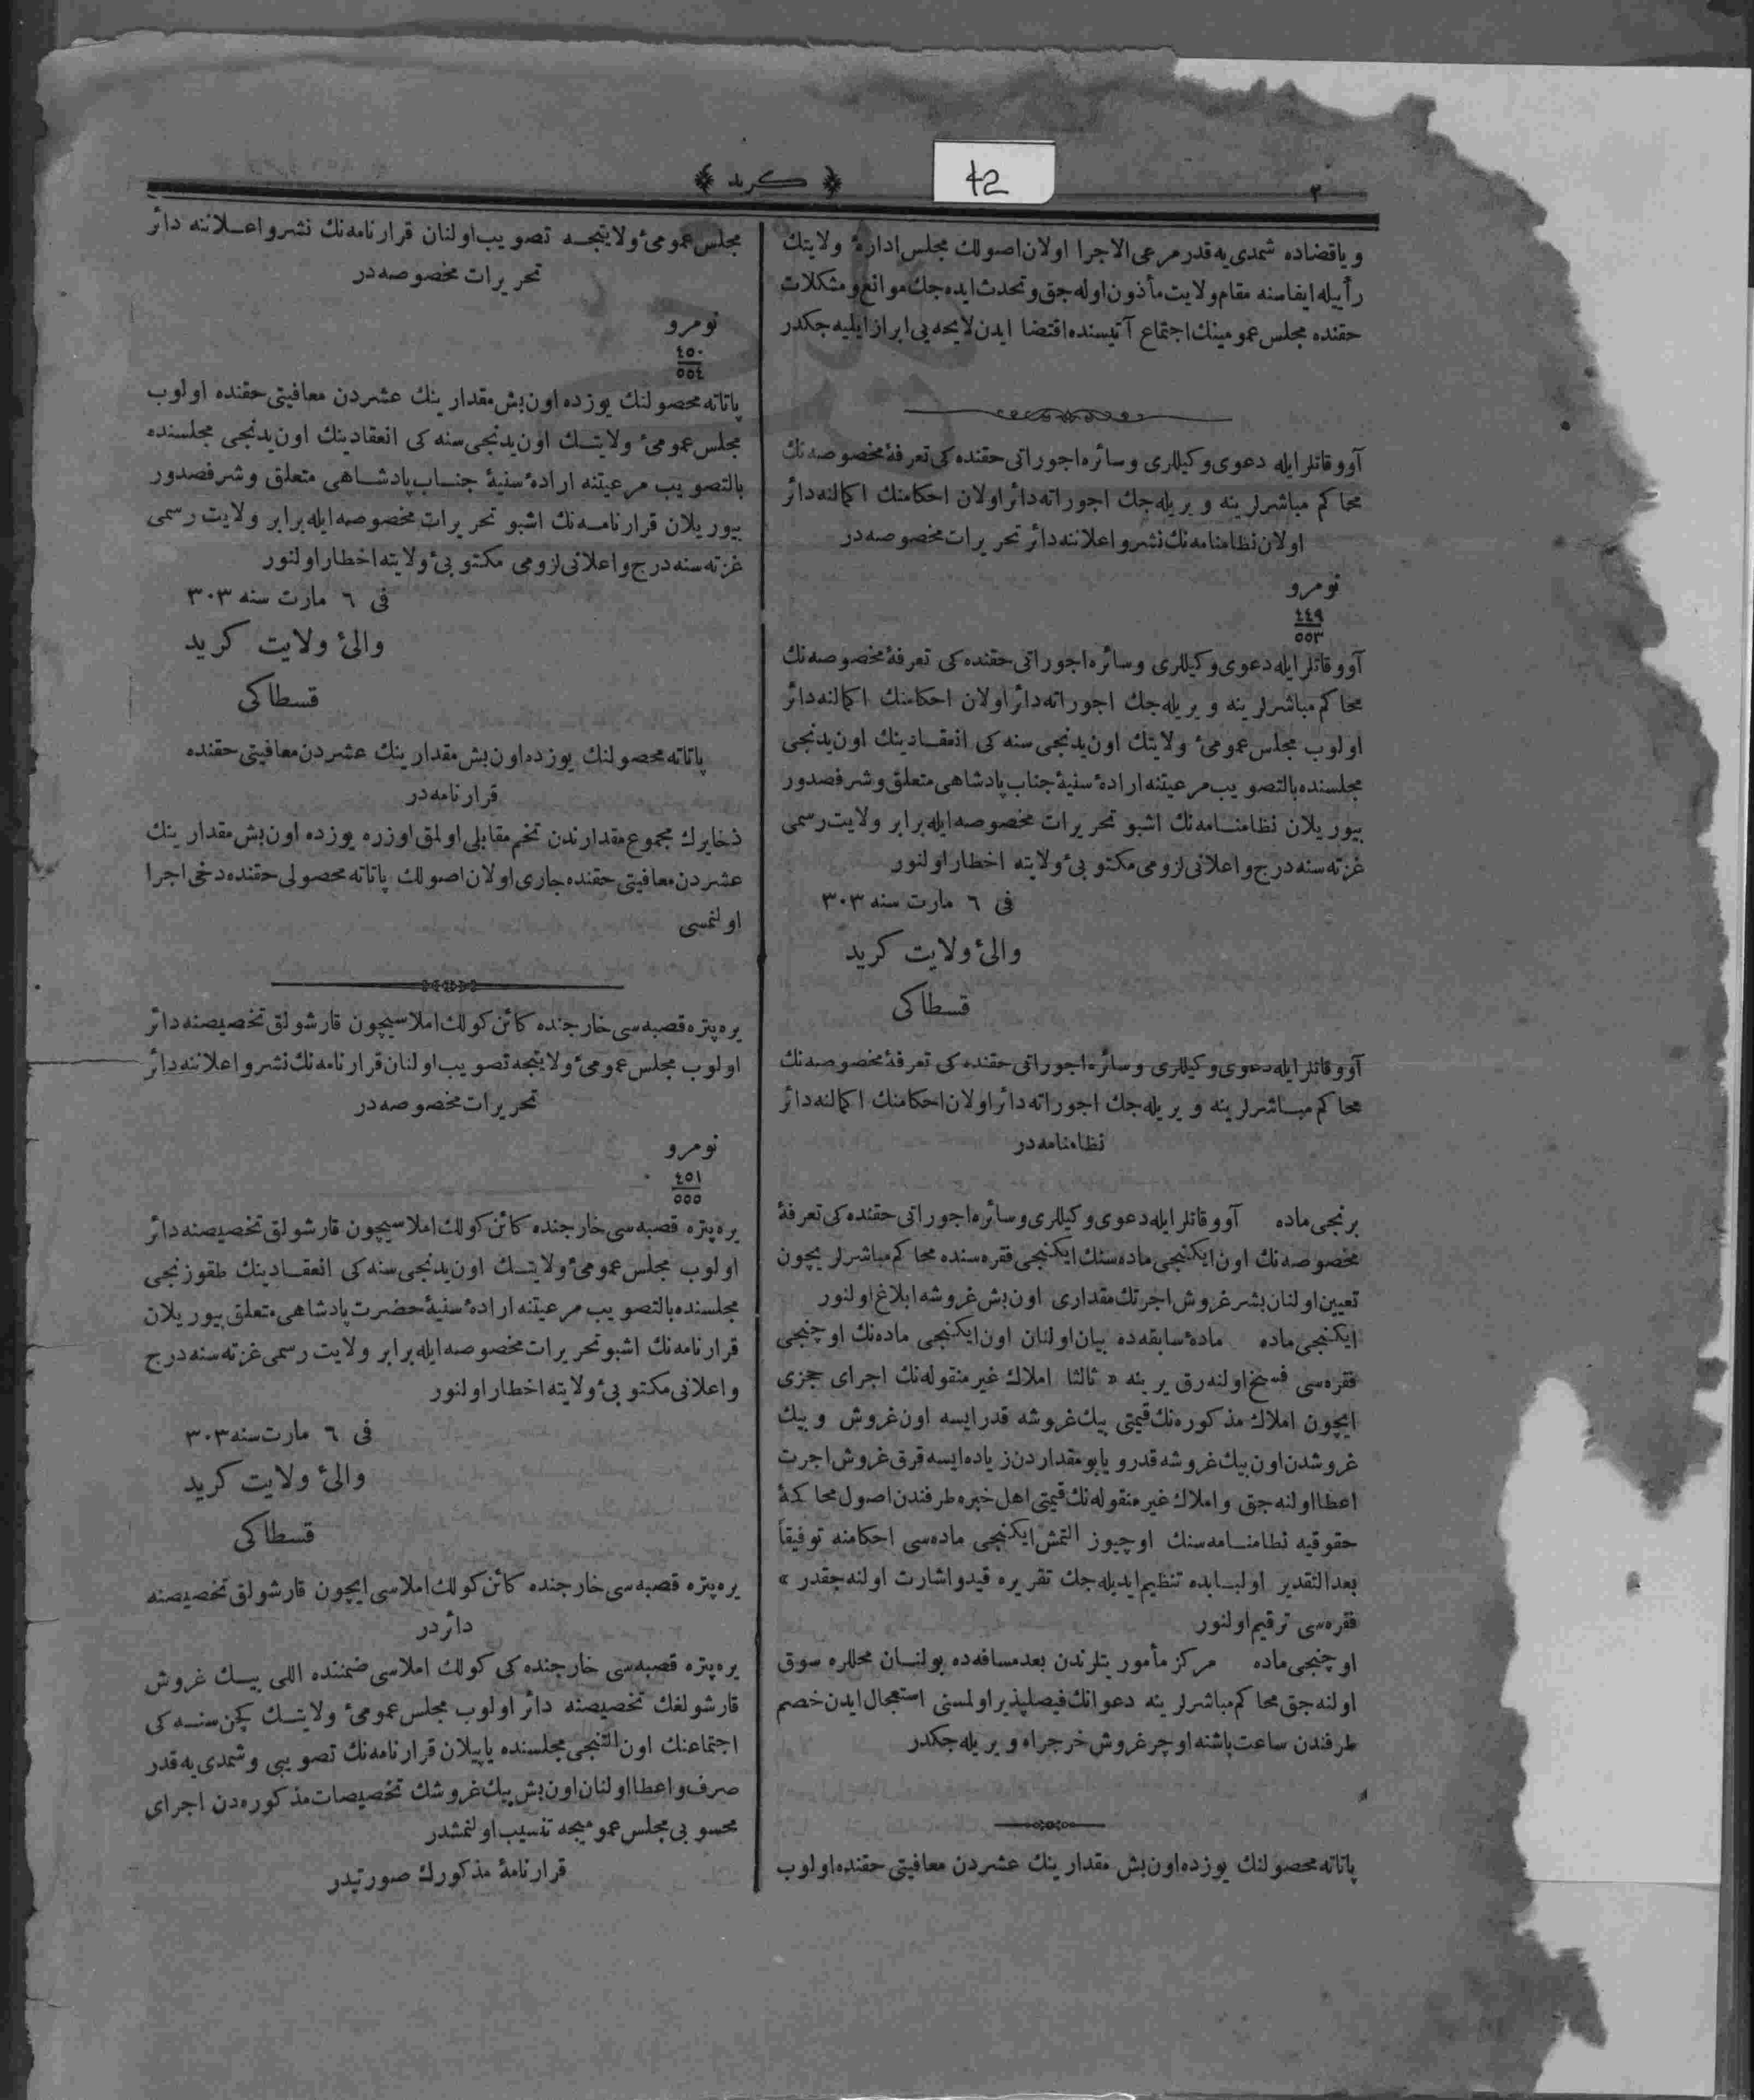 ٢
42
﴿ كريد ﴾
و ياقضاده شمدی‌يه قدر مرعی الاجرا اولان اصولك مجلس ادارهٔ ولايتك
رأييله ايفاسنه مقام ولايت مأذون اوله جق و تحدث ايده جك موانع و مشكلات
حقنده مجلس عمومينك اجتماع آتيسنده اقتضا ايدن لايحه يی ابراز ايليه جكدر
آووقاتلر ايله دعوی وكيللری و سائره اجوراتی حقنده كی تعرفهٔ مخصوصه نك
محاكم مباشرلرينه ويريله جك اجوراته دائر اولان احكامنك اكمالنه دائر
اولان نظامنامه نك نشر و اعلاننه دائر تحريرات مخصوصه در
نومرو
٤٤٩
٥٥٣
آووقاتلر ايله دعوی وكيللری و سائره اجوراتی حقنده كی تعرفهٔ مخصوصه نك
محاكم مباشرلرينه ويريله جك اجوراته دائر اولان احكامنك اكمالنه دائر
اولوب مجلس عمومیٔ ولايتك اون يدنجی سنه كی انعقادينك اون يدنجی
مجلسنده بالتصويب مرعيتنه ارادهٔ سنيهٔ جناب پادشاهی متعلق و شرفصدور
بيوريلان نظامنامه نك اشبو تحريرات مخصوصه ايله برابر ولايت رسمی
غزته سنه درج و اعلانی لزومی مكتوبیٔ ولايته اخطار اولنور
فی ٦ مارت سنه ٣٠٣
والیٔ ولايت كريد
قسطاكی
آووقاتلر ايله دعوی وكيللری و سائره اجوراتی حقنده كی تعرفهٔ مخصوصه نك
محاكم مباشرلرينه ويريله جك اجوراته دائر اولان احكامنك اكمالنه دائر
نظامنامه در
برنجی ماده آووقاتلر ايله دعوی وكيللری و سائره اجوراتی حقنده كی تعرفهٔ
مخصوصه نك اون ايكنجی ماده سنك ايكنجی فقره سنده محاكم مباشرلريچون
تعيين اولنان بشر غروش اجرتك مقداری اون بش غروشه ابلاغ اولنور
ايكنجی ماده مادهٔ سابقه ده بيان اولنان اون ايكنجی ماده نك اوچنجی
فقره سی فسخ اولنه رق يرينه « ثالثا املاك غير منقوله نك اجرای حجزی
ايچون املاك مذكوره نك قيمتی بيك غروشه قدر ايسه اون غروش و بيك
غروشدن اون بيك غروشه قدر و يا بو مقداردن زياده ايسه قرق غروش اجرت
اعطا اولنه جق و املاك غير منقوله نك قيمتی اهل خبره طرفندن اصول محاكمهٔ
حقوقيه نظامنامه سنك اوچيوز التمش ايكنجی ماده سی احكامنه توفيقاً
بعد التقدير اولبابده تنظيم ايديله جك تقريره قيد و اشارت اولنه جقدر »
فقره سی ترقيم اولنور
اوچنجی ماده مركز مأموريتلرندن بعد مسافه ده بولنان محللره سوق
اولنه جق محاكم مباشرلرينه دعوانك فيصلپذير اولمسنی استعجال ايدن خصم
طرفندن ساعت باشنه اوچر غروش خرجراه ويريله جكدر
پاتاته محصولنك يوزده اون بش مقدارينك عشردن معافيتی حقنده اولوب
مجلس عمومیٔ ولايتجه تصويب اولنان قرارنامه نك نشر و اعلاننه دائر
تحريرات مخصوصه در
نومرو
٤٥٠
٥٥٤
پاتاته محصولنك يوزده اون بش مقدارينك عشردن معافيتی حقنده اولوب
مجلس عمومیٔ ولايتك اون يدنجی سنه كی انعقادينك اون يدنجی مجلسنده
بالتصويب مرعيتنه ارادهٔ سنيهٔ جناب پادشاهی متعلق و شرفصدور
بيوريلان قرارنامه نك اشبو تحريرات مخصوصه ايله برابر ولايت رسمی
غزته سنه درج و اعلانی لزومی مكتوبیٔ ولايته اخطار اولنور
فی ٦ مارت سنه ٣٠٣
والیٔ ولايت كريد
قسطاكی
پاتاته محصولنك يوزده اون بش مقدارينك عشردن معافيتی حقنده
قرارنامه در
ذخايرك مجموع مقدارندن تخم مقابلی اولمق اوزره يوزده اون بش مقدارينك
عشردن معافيتی حقنده جاری اولان اصولك پاتاته محصولی حقنده دخی اجرا
اولنمسی
يره پتره قصبه سی خارجنده كائن كولك املاسيچون قارشولق تخصيصنه دائر
اولوب مجلس عمومیٔ ولايتجه تصويب اولنان قرارنامه نك نشر و اعلاننه دائر
تحريرات مخصوصه در
نومرو
٤٥١
٥٥٥
يره پتره قصبه سی خارجنده كائن كولك املاسيچون قارشولق تخصيصنه دائر
اولوب مجلس عمومیٔ ولايتك اون يدنجی سنه كی انعقادينك طقوزنجی
مجلسنده بالتصويب مرعيتنه ارادهٔ سنيهٔ حضرت پادشاهی متعلق بيوريلان
قرارنامه نك اشبو تحريرات مخصوصه ايله برابر ولايت رسمی غزته سنه درج
و اعلانی مكتوبیٔ ولايته اخطار اولنور
فی ٦ مارت سنه ٣٠٣
والیٔ ولايت كريد
قسطاكی
يره پتره قصبه سی خارجنده كائن كولك املاسی ايچون قارشولق تخصيصنه
دائردر
يره پتره قصبه سی خارجنده كی كولك املاسی ضمننده اللی بيك غروش
قارشولغك تخصيصنه دائر اولوب مجلس عمومیٔ ولايتك كچن سنه كی
اجتماعنك اون التنجی مجلسنده ياپيلان قرارنامه نك تصويبی و شمدی‌يه قدر
صرف و اعطا اولنان اون بش بيك غروشك تخصيصات مذكوره دن اجرای
محسوبی مجلس عموميجه تنسيب اولنمشدر
قرارنامهٔ مذكورك صورتيدر